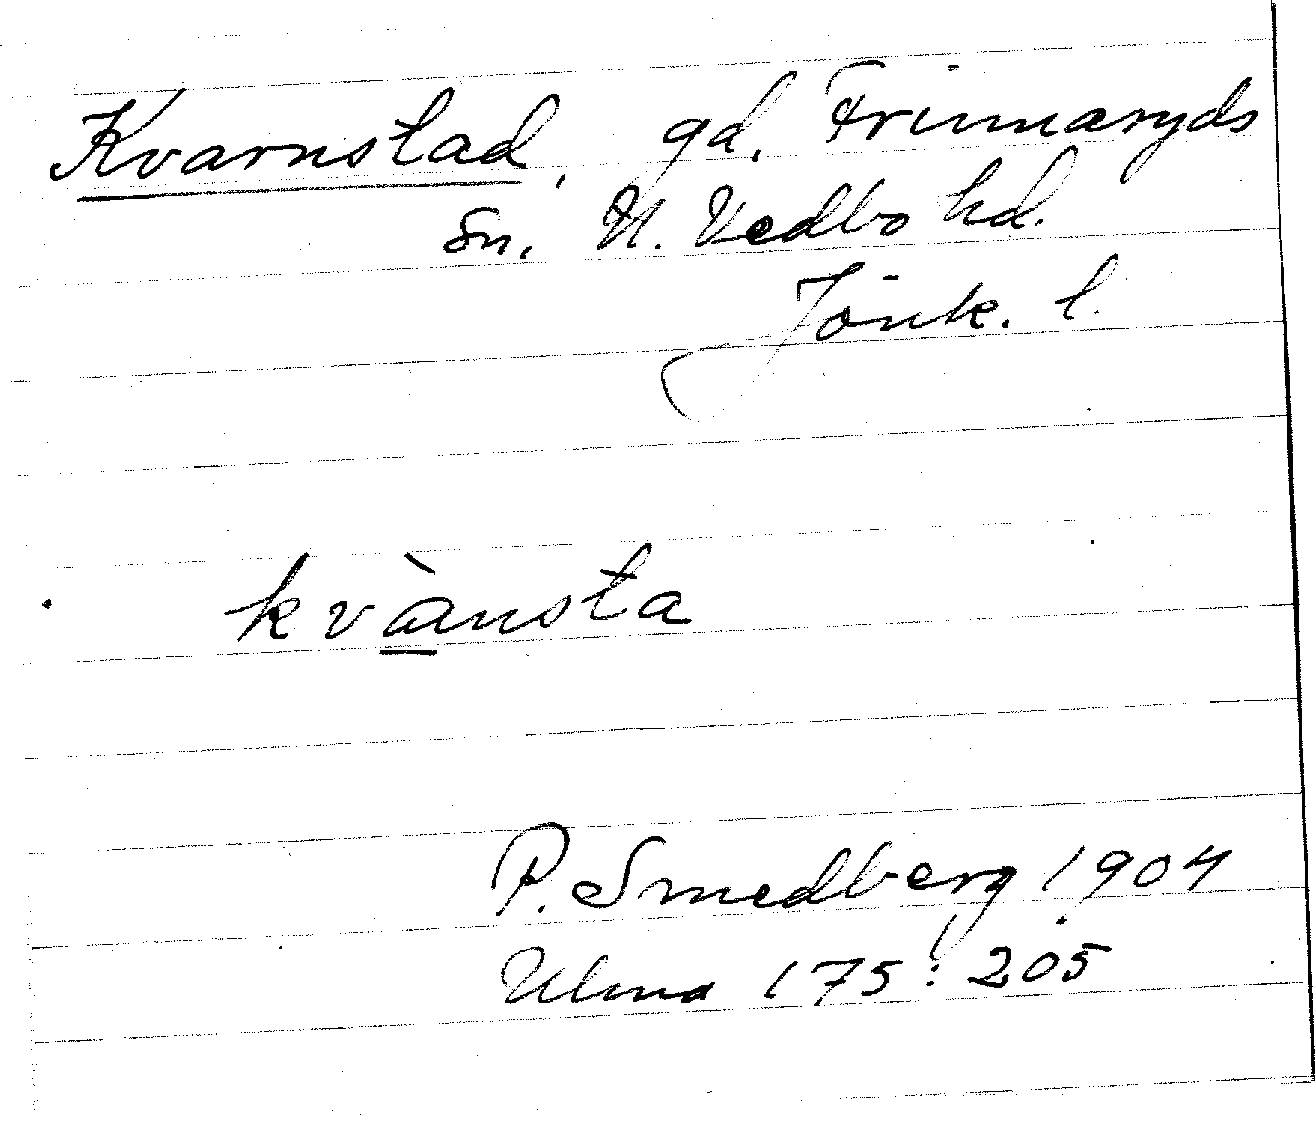 Kvarnstad, gd. Frinnaryds
Sn. N. Vedbo hd.
Jönk. l.
kvànsta
P. Smedberg 1904
Ulma 175:205